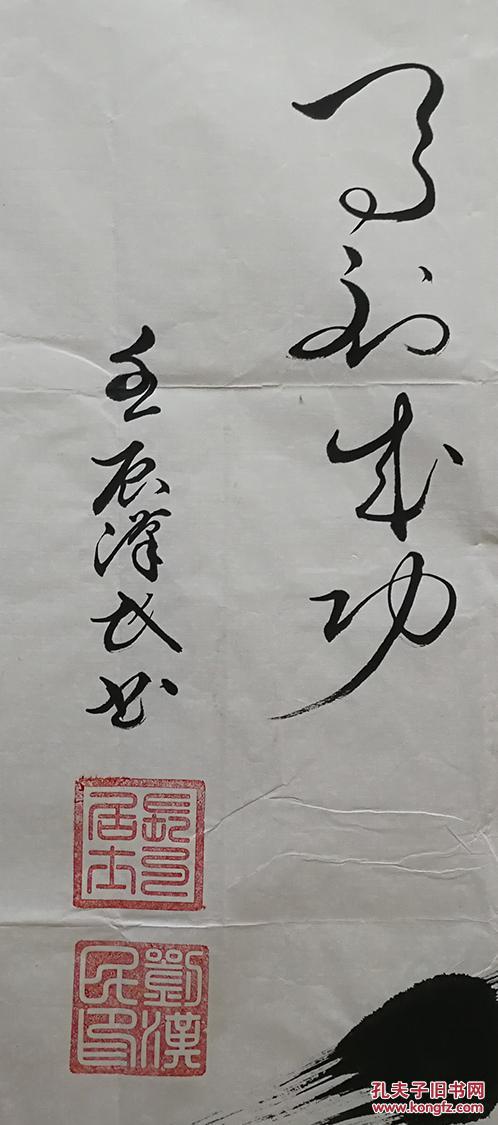 马到成功
壬辰漢民书
居士
劉漢民印
孔夫子旧书网
www.kongfz.com